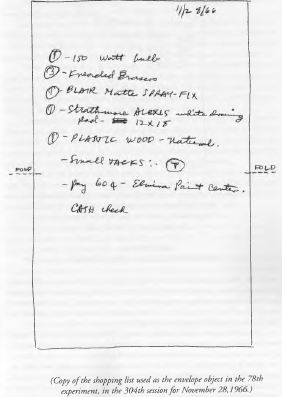 11/28/66
① - 150 Watt bulb
③ - Kneaded Erasers
① - BLAIR Matte SPRAY-FIX
① - Strathmore ALEXIS white drawing
pad - 12 x 18
① - PLASTIC WOOD - Natural.
- Small TACKS :-
FOLD
FOLD
- Pay 60¢ - Elmira Paint Center.
CASH check
(Copy of the shopping list used as the envelope object in the 78th
experiment, in the 304th session for November 28, 1966.)